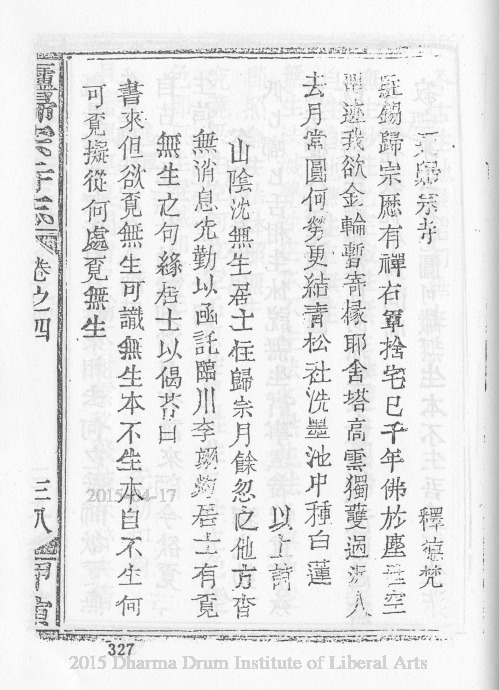 歸宗寺　釋梵
錫歸宗應有禪右軍捨宅已千年佛於塵空
遠我欲金輪暫寄椽耶舍塔高雲獨護過溪人
去月常圓何勞更結青松社洗墨池中種白蓮
以上詩
山陰沈無生居士住歸宗月餘忽之他方杳
無消息先勤以函託臨川李翊灼居士有覓
無生之句緣居士以偈答曰
書來但欲覓無生可識無生本不生本自不生何
可覓擬從何處覓無生
歸宗寺志　卷之四　三八
327
2015-04-17
2015 Dharma Drum Institute of Liberal Arts